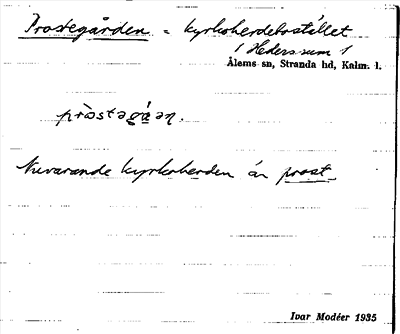 Prostegården = kyrkoherdebostället
i Hederssum 1
Ålems sn, Stranda hd, Kalm. l.
pròstəgá̱ən.
Nuvarande kyrkoherden är prost.
Ivar Modéer 1935